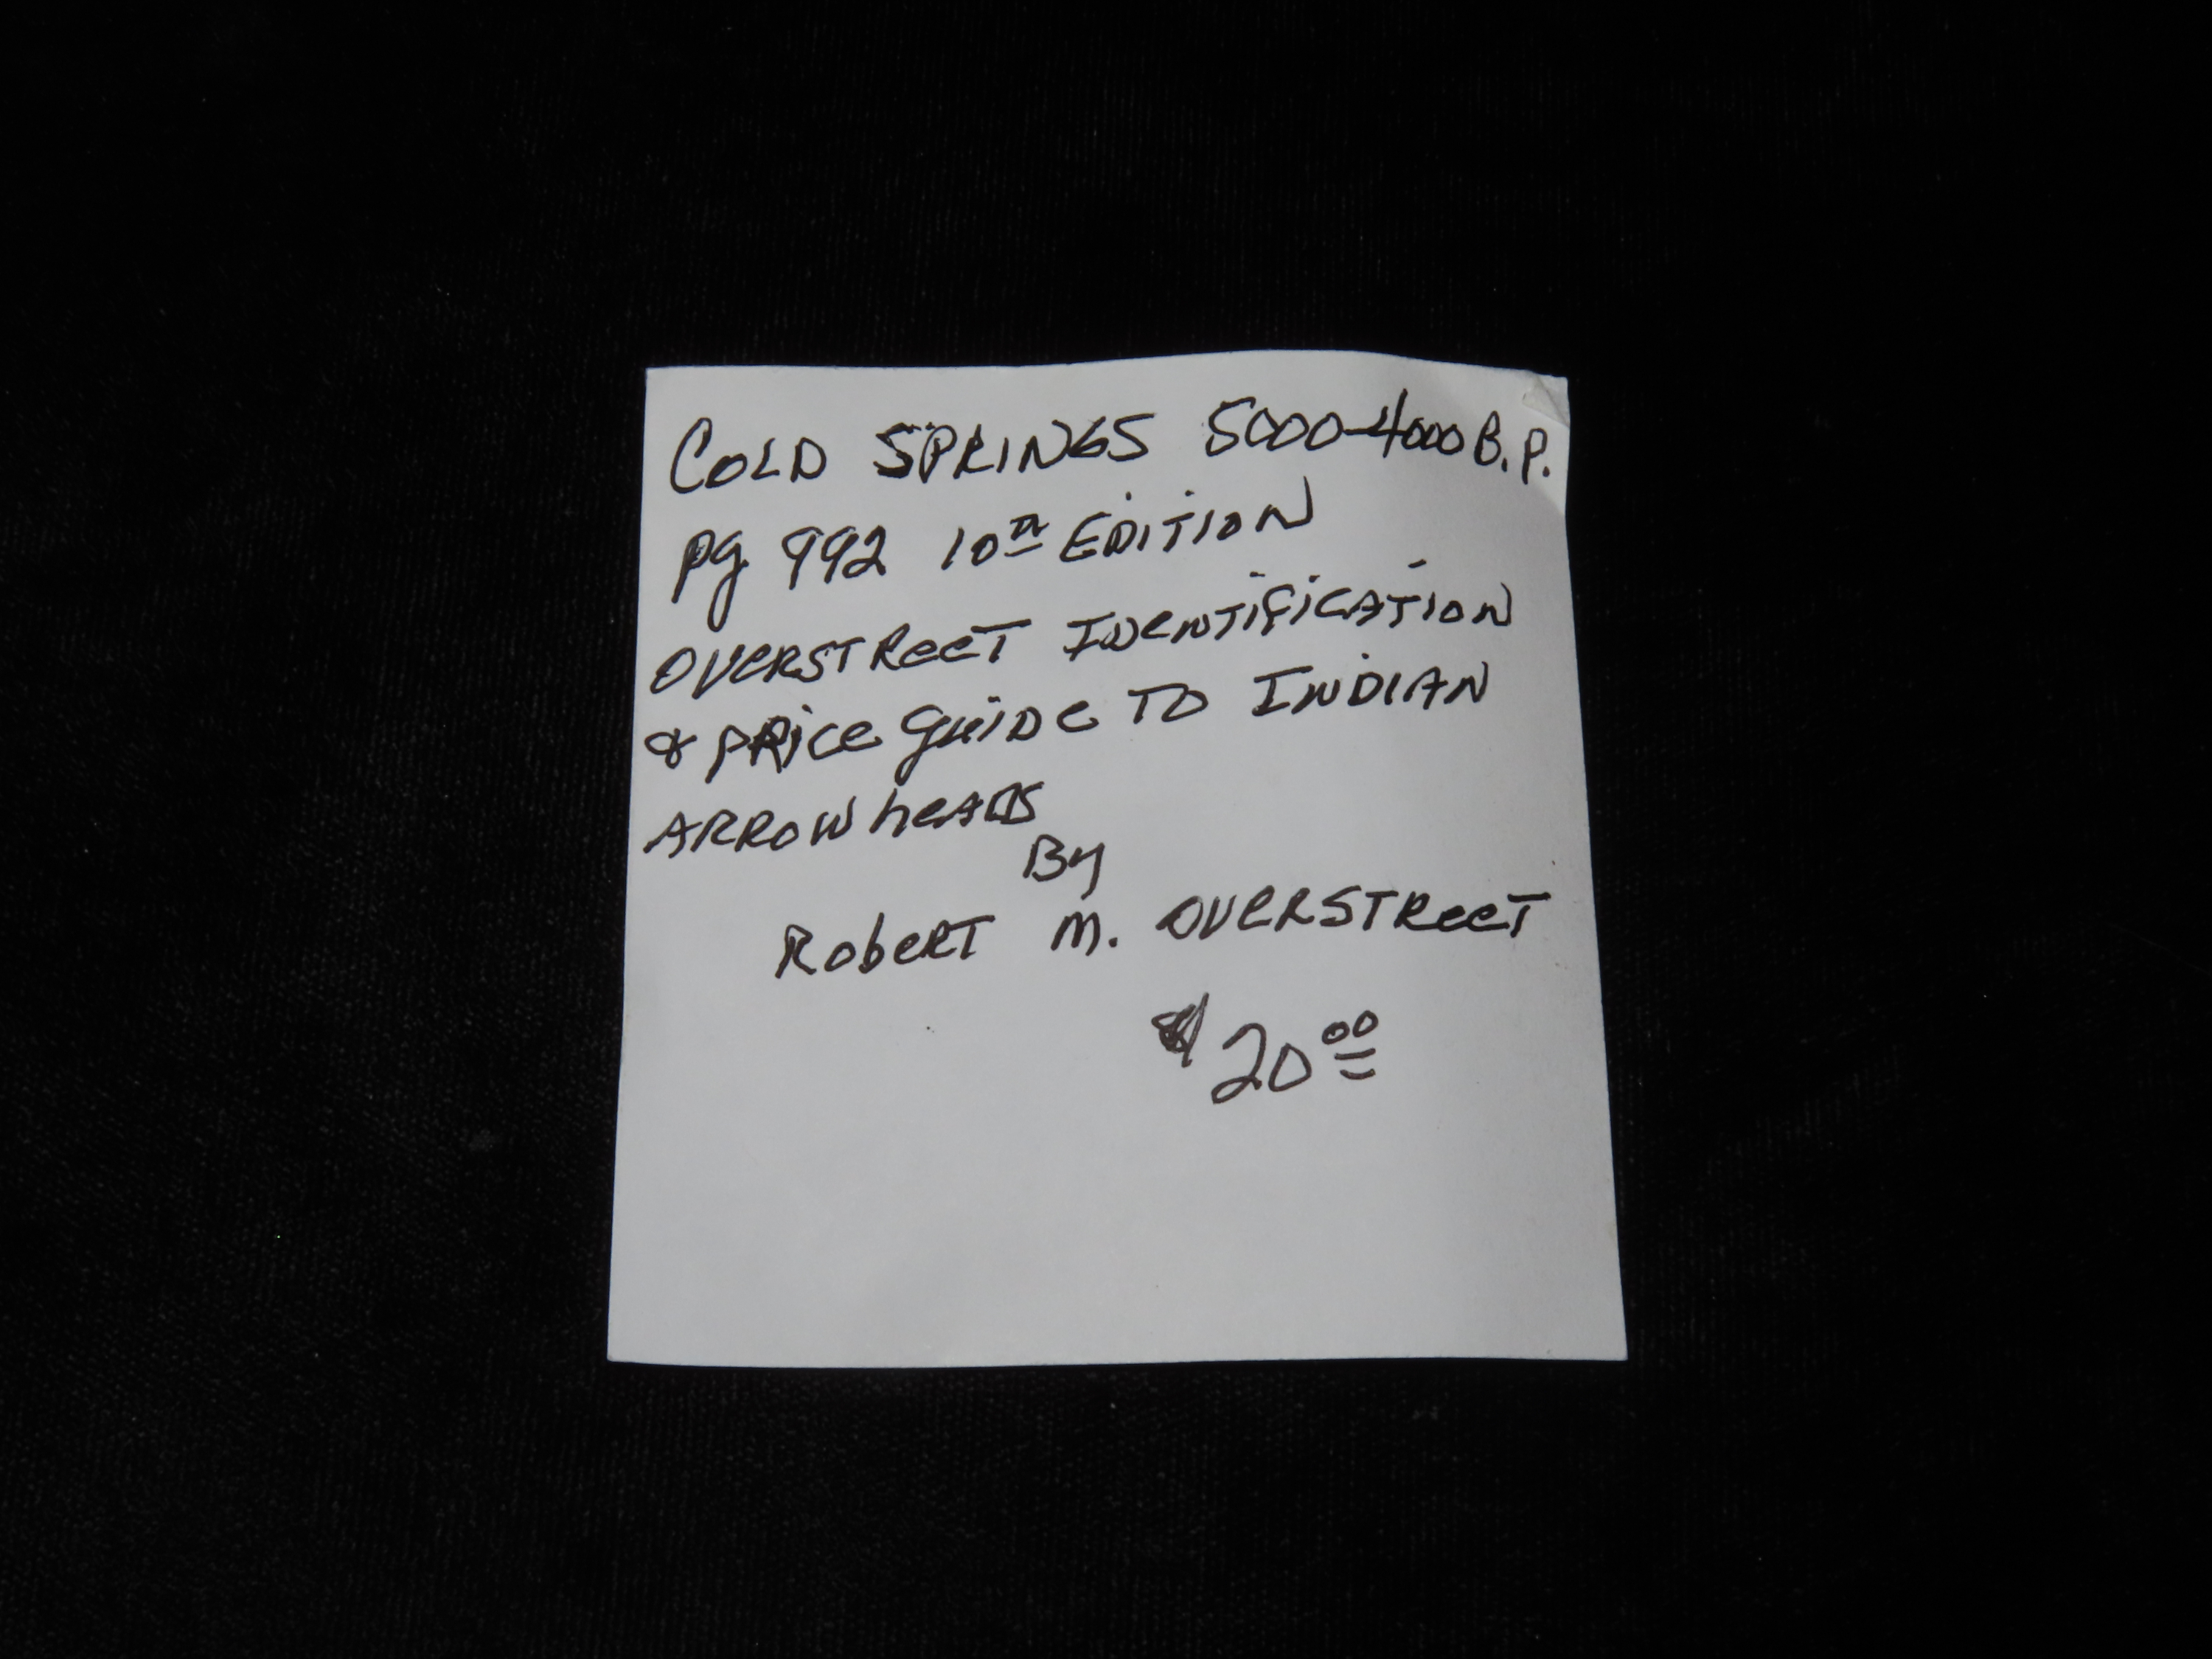 COLD SPRINGS 5000-4000 B.P.
pg 992 10th EDITION
OVERSTREET IDENTIFICATION
& PRICE GUIDE TO INDIAN
ARROWHEADS
By
ROBERT M. OVERSTREET
$20.00